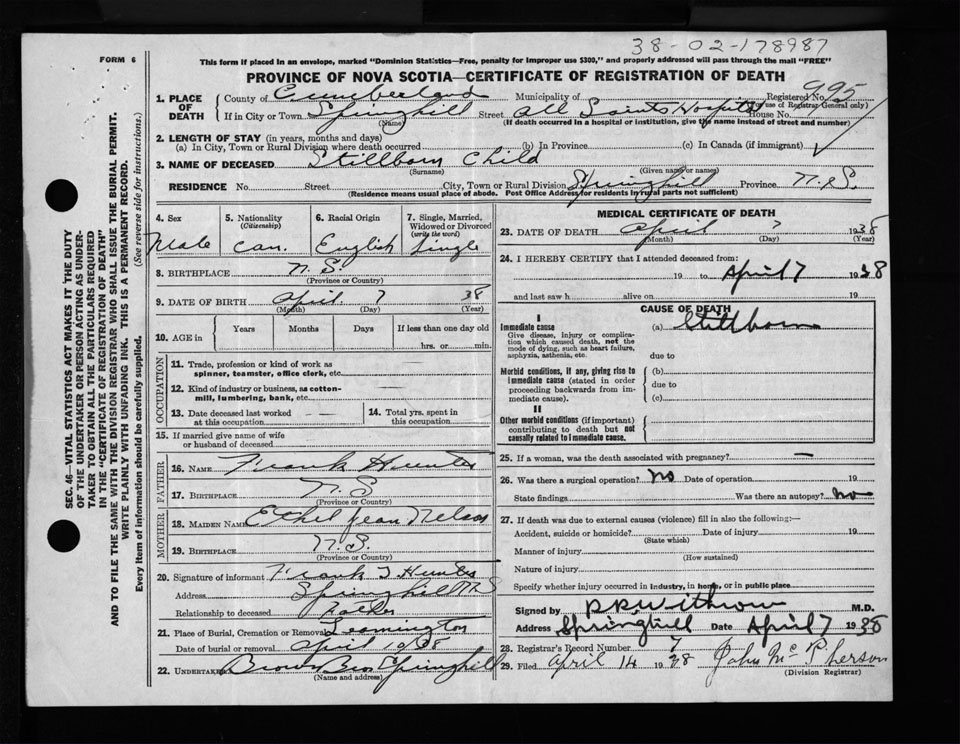 38-02-178987
FORM 6
This form if placed in an envelope, marked "Dominion Statistics—Free, penalty for improper use $300," and properly addressed will pass through the mail "FREE"
PROVINCE OF NOVA SCOTIA—CERTIFICATE OF REGISTRATION OF DEATH
SEC. 46—VITAL STATISTICS ACT MAKES IT THE DUTY
OF THE UNDERTAKER OR PERSON ACTING AS UNDER-
TAKER TO OBTAIN ALL THE PARTICULARS REQUIRED
IN THE "CERTIFICATE OF REGISTRATION OF DEATH"
AND TO FILE THE SAME WITH THE DIVISION REGISTRAR WHO SHALL ISSUE THE BURIAL PERMIT.
WRITE PLAINLY WITH UNFADING INK. THIS IS A PERMANENT RECORD.
Every item of information should be carefully supplied. (See reverse side for instructions.)
1. PLACE OF DEATH
County of Cumberland Municipality of Registered No. 995
(For use of Registrar General only)
If in City or Town Springhill Street All Saints Hospital House No.
(Name)
(If death occurred in a hospital or institution, give the name instead of street and number)
2. LENGTH OF STAY (in years, months and days)
(a) In City, Town or Rural Division where death occurred (b) In Province (c) In Canada (if immigrant)
3. NAME OF DECEASED Stillborn Child
(Surname) (Given name or names)
RESIDENCE No. Street City, Town or Rural Division Springhill Province N.S.
(Residence means usual place of abode. Post Office Address for residents in rural parts not sufficient)
4. Sex Male
5. Nationality (Citizenship) Can.
6. Racial Origin English
7. Single, Married, Widowed or Divorced (write the word) Single
8. BIRTHPLACE N.S.
(Province or Country)
9. DATE OF BIRTH April 7 38
(Month) (Day) (Year)
10. AGE in Years Months Days If less than one day old
hrs. or min.
OCCUPATION
11. Trade, profession or kind of work as
spinner, teamster, office clerk, etc.
12. Kind of industry or business, as cotton-
mill, lumbering, bank, etc.
13. Date deceased last worked
at this occupation
14. Total yrs. spent in
this occupation
15. If married give name of wife
or husband of deceased
FATHER
16. NAME Frank Hunter
17. BIRTHPLACE N.S.
(Province or Country)
MOTHER
18. MAIDEN NAME Ethel Jean Nelson
19. BIRTHPLACE N.S.
(Province or Country)
20. Signature of informant Frank J Hunter
Address Springhill NS
Relationship to deceased Father
21. Place of Burial, Cremation or Removal Leamington
Date of burial or removal April 1938
22. UNDERTAKER Brown Bros Springhill
(Name and address)
MEDICAL CERTIFICATE OF DEATH
23. DATE OF DEATH April 7 1938
(Month) (Day) (Year)
24. I HEREBY CERTIFY that I attended deceased from:
19 to April 7 1938
and last saw h alive on 19
CAUSE OF DEATH
I
Immediate cause (a) Stillborn
Give disease, injury or complica-
tion which caused death, not the
mode of dying, such as heart failure,
asphyxia, asthenia, etc.
due to
Morbid conditions, if any, giving rise to
immediate cause (stated in order
proceeding backwards from im-
mediate cause).
(b)
due to
(c)
II
Other morbid conditions (if important)
contributing to death but not
causally related to immediate cause.
25. If a woman, was the death associated with pregnancy? —
26. Was there a surgical operation? No Date of operation 19
State findings Was there an autopsy? No
27. If death was due to external causes (violence) fill in also the following:—
Accident, suicide or homicide? Date of injury 19
(State which)
Manner of injury
(How sustained)
Nature of injury
Specify whether injury occurred in industry, in home, or in public place
Signed by Withrow M.D.
Address Springhill Date April 7 1938
28. Registrar's Record Number 7
29. Filed April 14 1938 John McPherson
(Division Registrar)